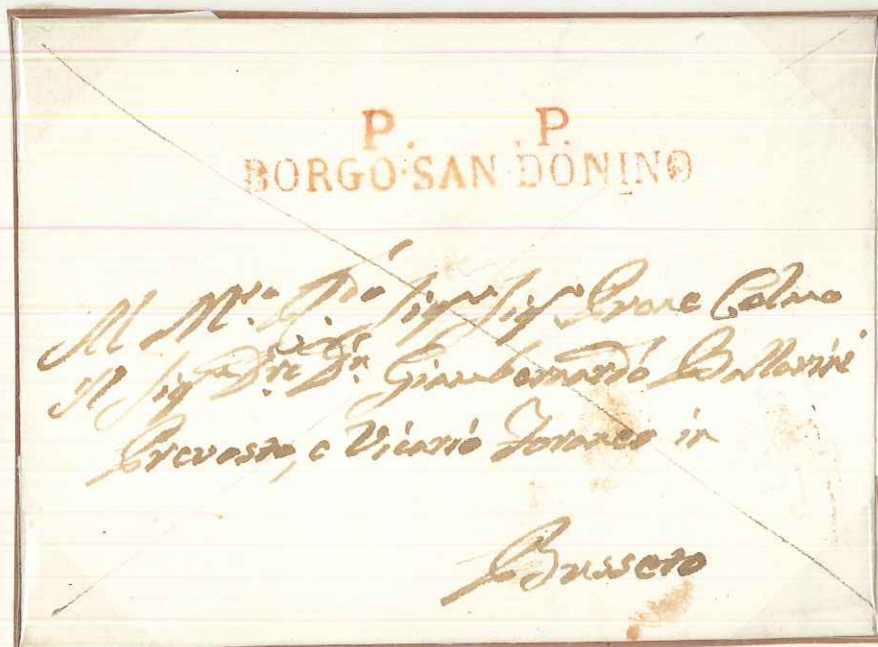 P. .P.
BORGO·SAN·DONINO
Al M.to R.do Sig.r Sig.r Prone Colmo
Il Sig.r D.r D.n Giambernardo Ballarini
Prevosto, e Vicario Foraneo in
Busseto